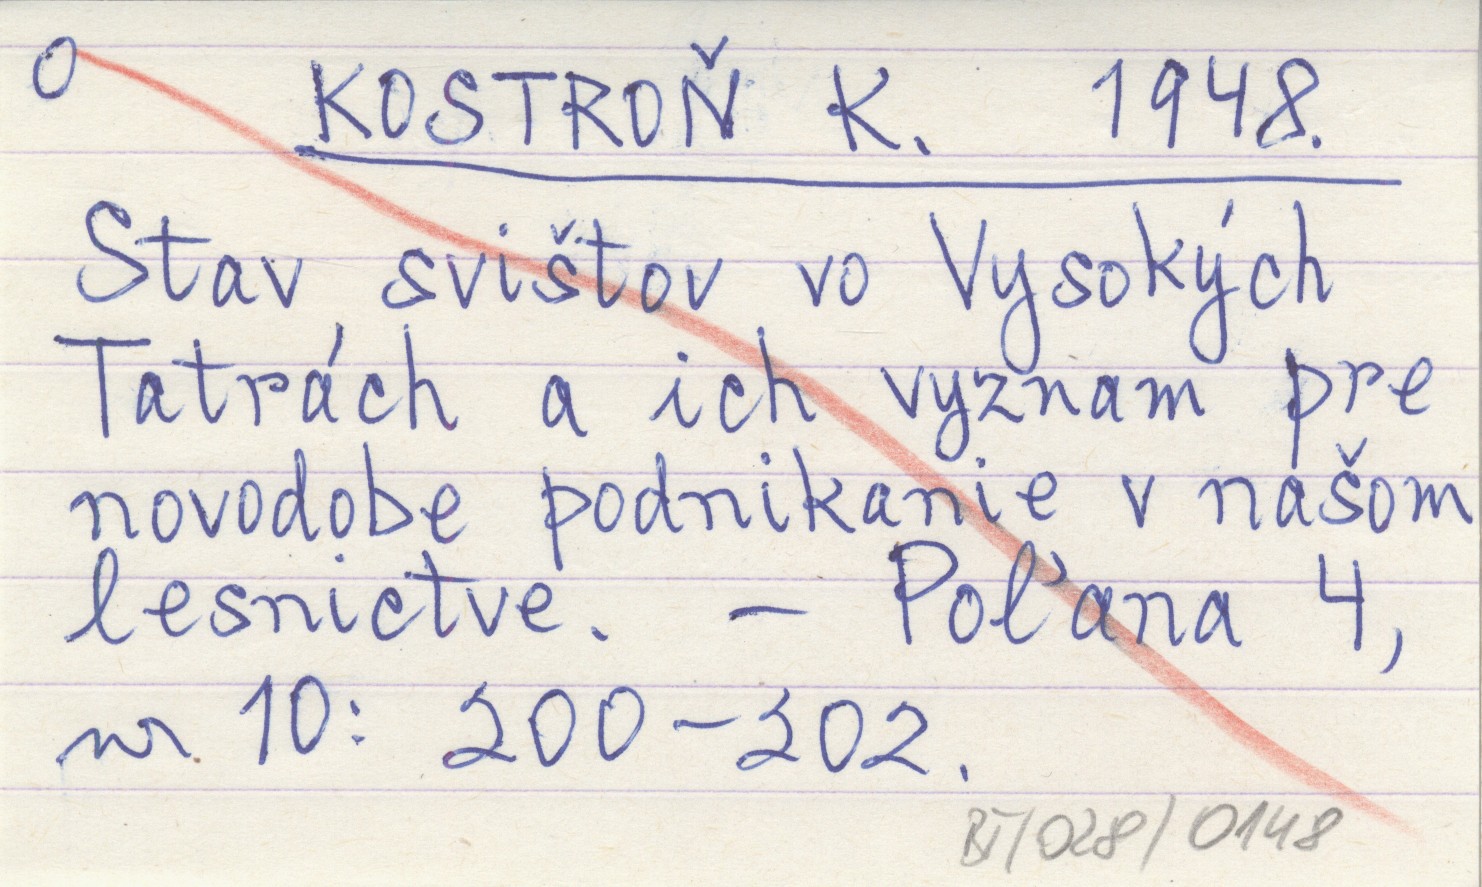 O KOSTROŇ K. 1948.
Stav svištov vo Vysokých
Tatrách a ich vyznam pre
novodobe podnikanie v našom
lesnictve. – Poľana 4,
nr 10: 200–202.
BI/028/0148